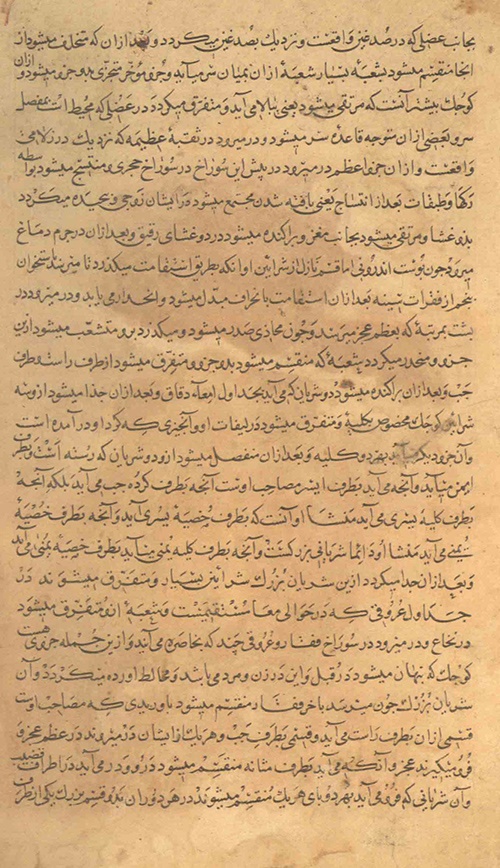 بجانب عضلی که در صدغین واقعست و نزدیک بصدغین میگردد و بعد از آن که متخلف میشود از
آنجا منقسم میشود بشعبهٔ بسیار شعبهٔ از آن بمیان سر میآید و جزو مؤخر متجزی بدو جزو میشود
کوچک بیشتر آنست که مرتقی میشود یعنی ببالا می آید و متفرق میگردد در عضلی که محیط است بمفصل
سر و بعضی از آن متوجه قاعدهٔ سر میشود و در میرود در ثقبهٔ عظیمه که نزدیک درز لامی
واقعست و از آن جزو اعظم در میرود در پیش این سوراخ در سوراخ حجری و منتسج میشود بواسطه
و طبقات بعد از انتساج یعنی بافته شدن مجتمع میشود در ایشان زوجی و عیده میگردد
بدو غشا و مرتقی میشود بجانب مغز و پراکنده میشود در دو غشای رقیق و بعد از آن در جرم دماغ
میرود چون پوست اندرونی اما قسم نازل از شراین او آنکه بطریق استقامت میگذرد تا میرسد باستخوان
پنجم از فقرات سینه بعد از آن استقامت بانحراف مبدل میشود و انحدار می یابد و در میرود در
پشت بمرتبهٔ که بعظم عجز میرسد و چون محاذی صدر میشود و میگذرد برو متشعب میشود ازین
جزو و منحدر میگردد شعبهٔ که منقسم میشود بدو جزو و متفرق میشود از طرف راست و طرف
چپ و بعد از آن پراکنده میشود و دو شریان که می آید بجداول امعاء دقاق و بعد از آن جدا میشود ازو سه
شریان کوچک مخصوص بکلیه و متفرق میشود در لیفات او و آنچیزی که گرد او درآمده است
و آن جزو دیگر میآید بهر دو کلیه و بعد از آن منفصل میشود ازو دو شریان که رسته است بطرف
ایمن میآید و آنچه می آید بطرف ایسر مصاحب اوست آنچه بطرف گرده چپ می آید بلکه آنچه
بطرف کلیهٔ یسری می آید منشا او آنست که بطرف خصیهٔ یسری آید و آنچه بطرف خصیهٔ
یمنی می آید منشا او دایما شریانی بزرگست و آنچه بطرف کلیه یمنی میآید بطرف خصیه یمنی می آید
و بعد از آن جدا میگردد ازین شریان بزرگ شراین بسیار و متفرق میشوند در
جداول عروقی که در حوالی معا مستقیمست و شعبهٔ ازو متفرق میشود
در نخاع و در میرود در سوراخ فقار و عروقی چند که بخاصره می آید و ازین جمله جزوی هست
کوچک که پنهان میشود در قبل و این در زن و مرد می باشد و مخالط اورده میگردد و آن
شریان بزرگ چون میرسد بآخر فقار منقسم میشود باوردهٔ که مصاحب اوست
قسمی از آن بطرف راست می آید و قسمی بطرف چپ و هر یک از ایشان در میروند در عظم عجز و
فرو میگیرند عجز و آنکه می آید بطرف مثانه منقسم میشود در رو و در می آید در اطراف قضیب
و آن شریانی که فرو می آید بهر دو پای هر یک منقسم میشوند در هر دو ران بدو قسم بزرگ یکی از طرف